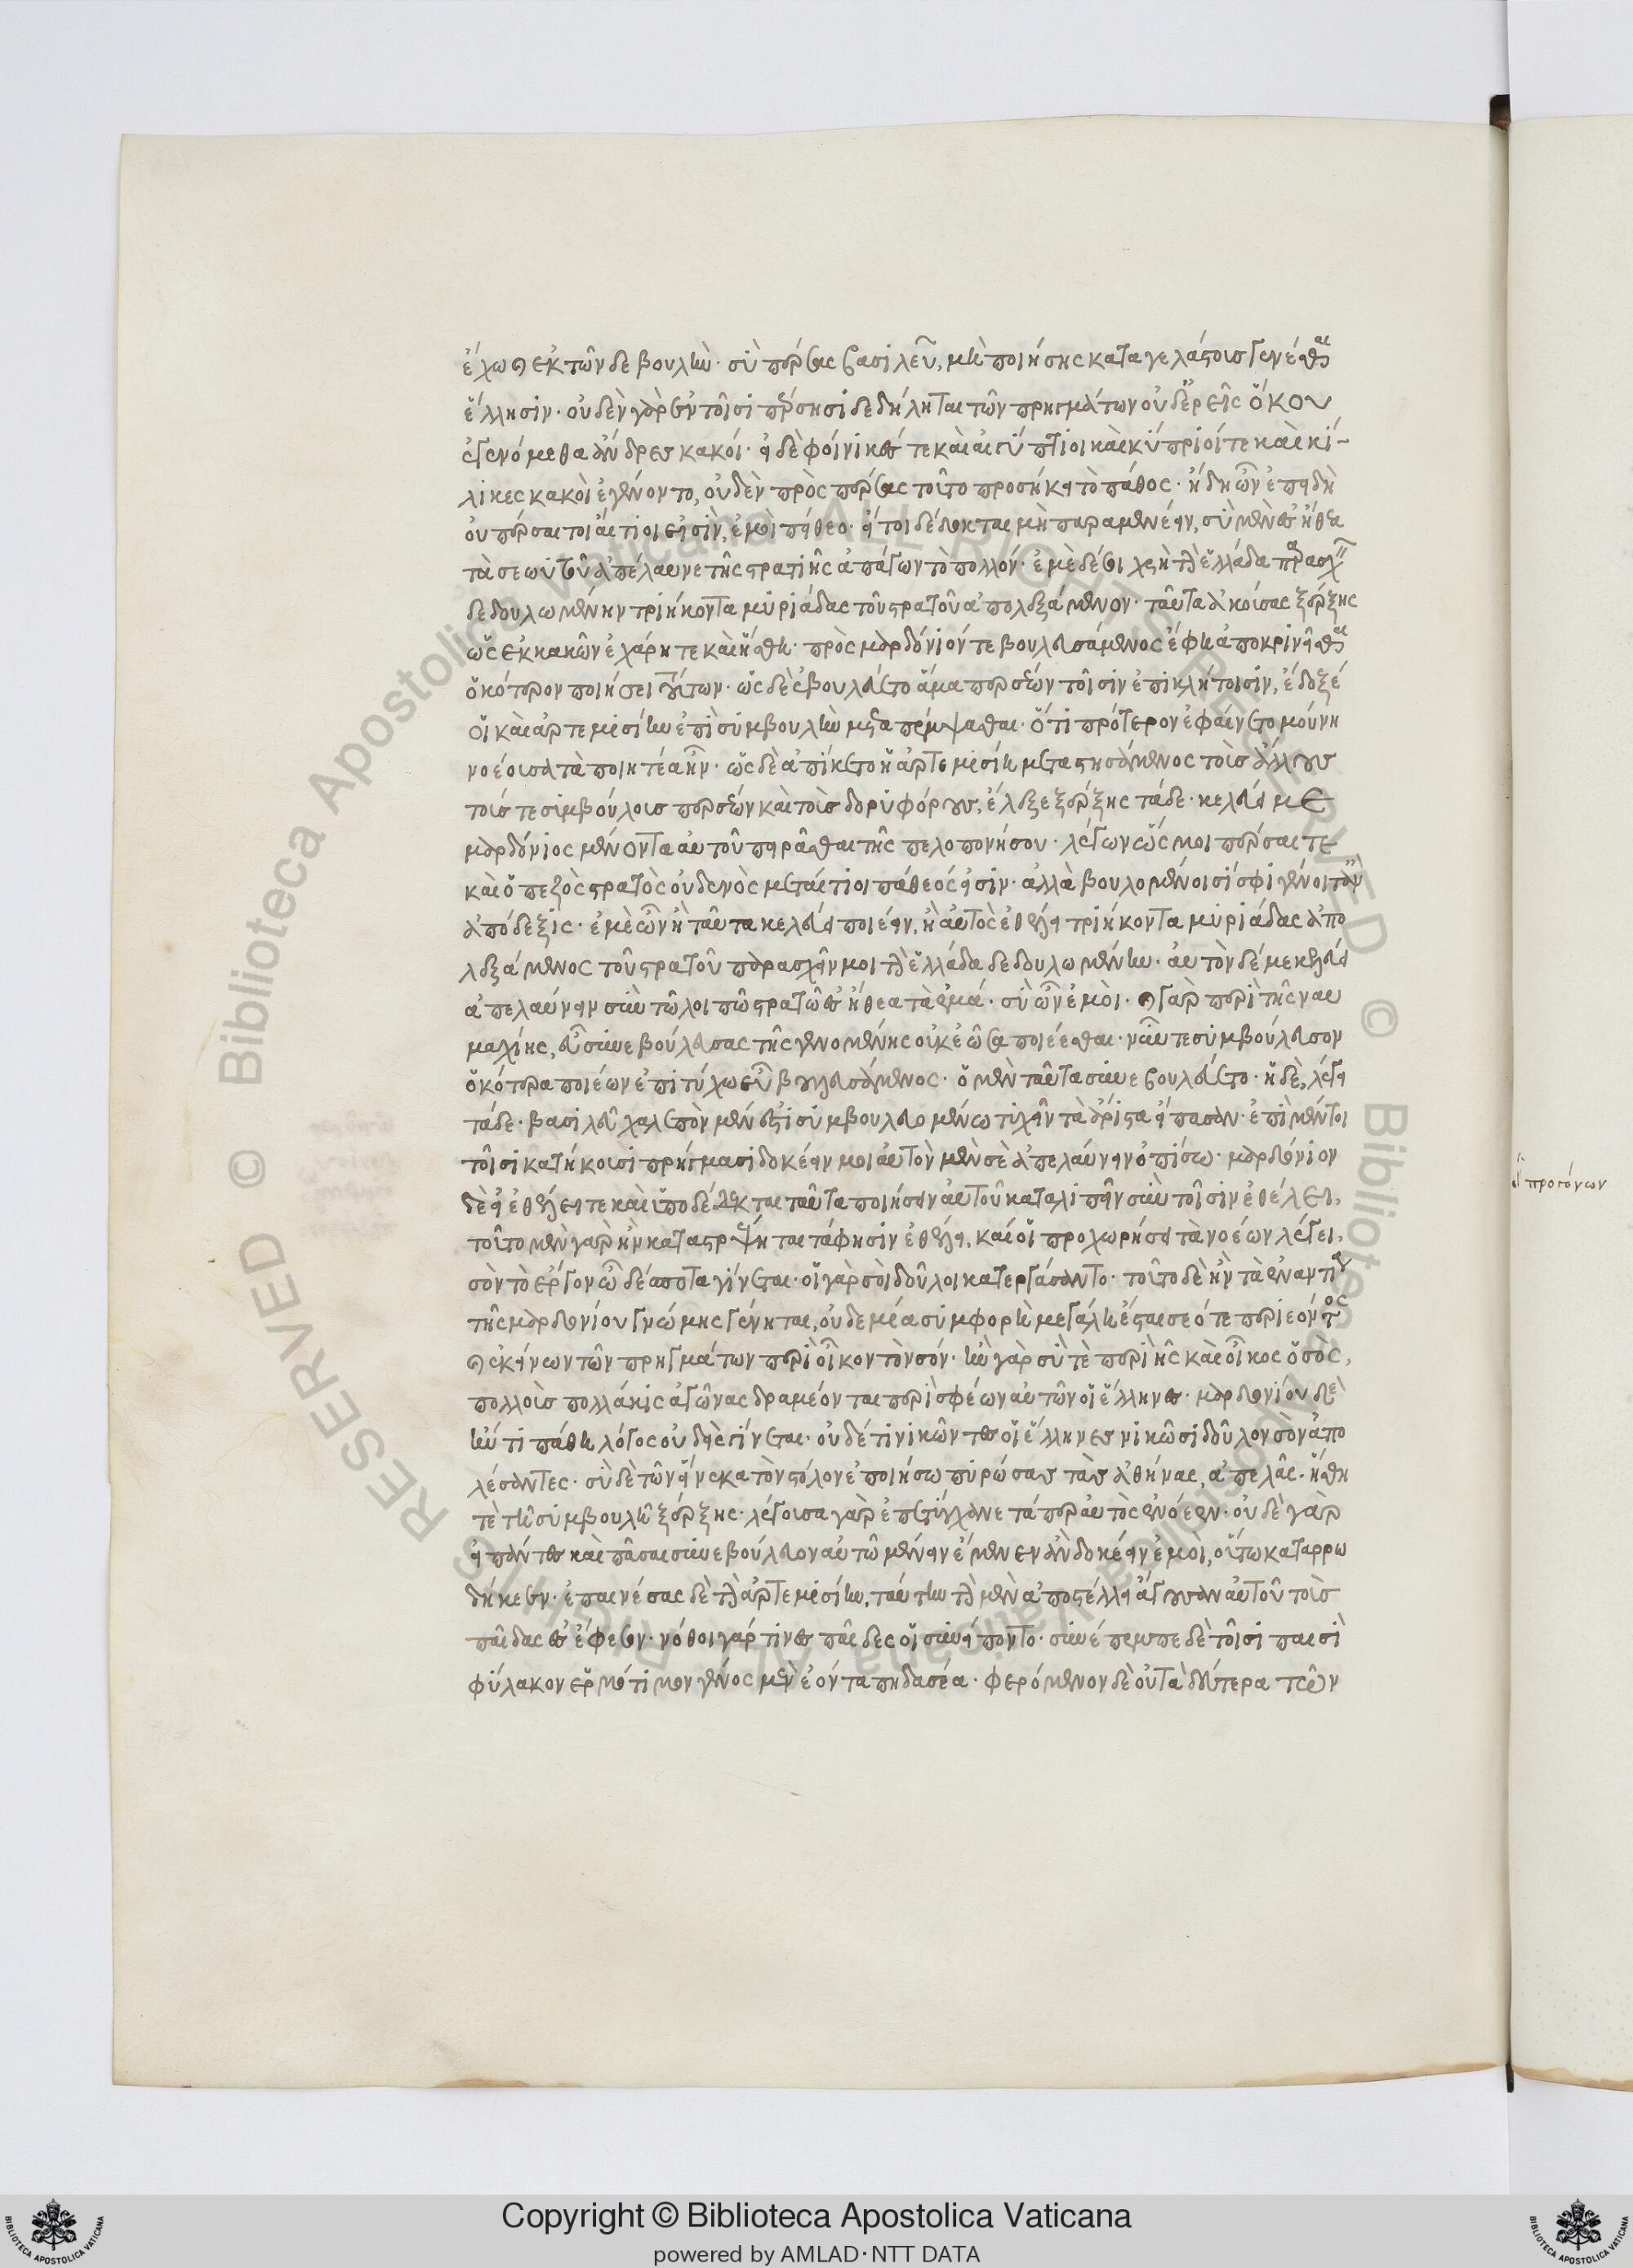 ἔχω καὶ ἐκ τῶνδε βουλήν· σὺ πέρσας βασιλεῦ, μὴ ποιήσῃς καταγελάστους γενέσθαι
ἕλλησιν· οὐδὲν γὰρ ἐν τοῖσι πέρσῃσι δεδήληται τῶν πρηγμάτων οὐδ' ἐρεῖς ὅκου
ἐγενόμεθα ἄνδρες κακοί· εἰ δὲ φοίνικές τε καὶ αἰγύπτιοι καὶ κύπριοί τε καὶ κί-
λικες κακοὶ ἐγένοντο, οὐδὲν πρὸς πέρσας τοῦτο προσήκει τὸ πάθος· ἤδη ὦν ἐπειδὴ
οὐ πέρσαι τοι αἴτιοι εἰσὶν, ἐμοὶ πείθεο· εἴ τοι δέδοκται μὴ παραμένειν, σὺ μὲν ἐς ἤθεα
τὰ σεωυτοῦ ἀπέλαυνε τῆς στρατιῆς ἀπάγων τὸ πολλόν· ἐμὲ δέ σοι χρὴ τὴν ἑλλάδα παρασχεῖν
δεδουλωμένην τριήκοντα μυριάδας τοῦ στρατοῦ ἀπολεξάμενον· ταῦτα ἀκούσας ξέρξης
ὡς ἐκ κακῶν ἐχάρη τε καὶ ἥσθη· πρὸς μαρδόνιόν τε βουλευσάμενος ἔφη ἀποκρινεῖσθαι
ὁκότερον ποιήσει τούτων· ὡς δὲ ἐβουλεύετο ἅμα περσέων τοῖσιν ἐπικλήτοισιν, ἔδοξέ
οἱ καὶ ἀρτεμισίην ἐπὶ συμβουλὴν μεταπέμψασθαι· ὅτι πρότερον ἐφαίνετο μούνη
νοέουσα τὰ ποιητέα ἦν· ὡς δὲ ἀπίκετο ἡ ἀρτεμισίη μεταστησάμενος τοὺς ἄλλους
τούς τε συμβούλους περσέων καὶ τοὺς δορυφόρους, ἔλεξε ξέρξης τάδε· κελεύει με
μαρδόνιος μένοντα αὐτοῦ πειρᾶσθαι τῆς πελοπονήσου· λέγων ὥς μοι πέρσαι τε
καὶ ὁ πεζὸς στρατὸς οὐδενὸς μεταίτιοι πάθεός εἰσιν· ἀλλὰ βουλομένοισί σφι γένοιτ' ἂν
ἀπόδεξις· ἐμὲ ὦν ἢ ταῦτα κελεύει ποιέειν, ἢ αὐτὸς ἐθέλει τριήκοντα μυριάδας ἀπο
λεξάμενος τοῦ στρατοῦ παρασχεῖν μοι τὴν ἑλλάδα δεδουλωμένην· αὐτὸν δέ με κελεύει
ἀπελαύνειν σὺν τῷ λοιπῷ στρατῷ ἐς ἤθεα τὰ ἐμά· σὺ ὦν ἐμοὶ· καὶ γὰρ περὶ τῆς ναυ
μαχίης, εὖ συνεβούλευσας τῆς γενομένης οὐκ ἐῶσα ποιέεσθαι· νῦν τε συμβούλευσον
ὁκότερα ποιέων ἐπιτύχω εὖ βουλευσάμενος· ὁ μὲν ταῦτα συνεβουλεύετο· ἡ δὲ, λέγει
τάδε· βασιλεῦ χαλεπὸν μέν ἐστι συμβουλευομένῳ τυχεῖν τὰ ἄριστα εἴπασαν· ἐπὶ μέντοι
τοῖσι κατήκουσι πρήγμασι δοκέειν μοι αὐτὸν μὲν σὲ ἀπελαύνειν ὀπίσω· μαρδόνιον
δὲ εἰ ἐθέλει τε καὶ ὑποδέδεκται ταῦτα ποιήσειν αὐτοῦ καταλιπεῖν σὺν τοῖσιν ἐθέλει,
τοῦτο μὲν γὰρ ἢν καταστρέψηται τά φησιν ἐθέλει, καί οἱ προχωρήσει τὰ νοέων λέγει,
σὸν τὸ ἔργον ὦ δέσποτα γίνεται· οἱ γὰρ σοὶ δοῦλοι κατεργάσαντο· τοῦτο δὲ ἢν τὰ ἐναντία
τῆς μαρδονίου γνώμης γένηται, οὐδεμία συμφορὴ μεγάλη ἔσται σεό τε περιεόντος
καὶ ἐκείνων τῶν πρηγμάτων περὶ οἶκον τὸν σόν· ἢν γὰρ σύ τε περιῇς καὶ οἶκος ὁ σὸς,
πολλοὺς πολλάκις ἀγῶνας δραμέονται περὶ σφέων αὐτῶν οἱ ἕλληνες· μαρδονίου δὲ
ἤν τι πάθῃ λόγος οὐδεὶς γίνεται· οὐδέ τι νικῶντες οἱ ἕλληνες νικῶσι δοῦλον σὸν ἀπο
λέσαντες· σὺ δὲ τῶν εἵνεκα τὸν στόλον ἐποιήσω πυρώσας τὰς ἀθήνας, ἀπελᾷς· ἥσθη
τε τῇ συμβουλῇ ξέρξης· λέγουσα γὰρ ἐπετύγχανε τά περ αὐτὸς ἐνόεεν· οὐδὲ γὰρ
εἰ πάντες καὶ πᾶσαι συνεβούλευον αὐτῷ μένειν ἔμενεν ἂν δοκέειν ἐμοὶ, οὕτω καταρρω
δήκεεν· ἐπαινέσας δὲ τὴν ἀρτεμισίην, ταύτην τὴν μὲν ἀποστέλλει ἄγουσαν αὐτοῦ τοὺς
παῖδας ἐς ἔφεσον· νόθοι γάρ τινες παῖδες οἱ συνείποντο· συνέπεμπε δὲ τοῖσι παισὶ
φύλακον ἑρμότιμον γένος μὲν ἐόντα πηδασέα· φερόμενον δὲ οὐ τὰ δεύτερα τῶν
προγόνων
Copyright © Biblioteca Apostolica Vaticana
powered by AMLAD·NTT DATA